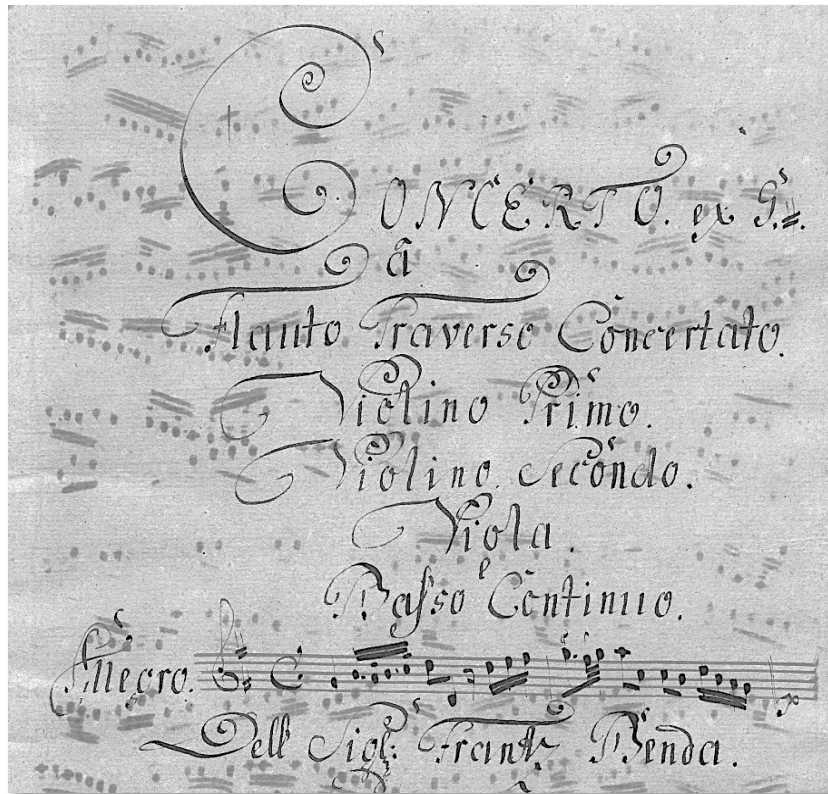 CONCERTO. ex G.♯.
â
Flauto Traverso Concertato.
Violino Primo.
Violino Secondo.
Viola.
e
Basso Continuo.
Allegro.
Dell Sigl: Frantz Benda.